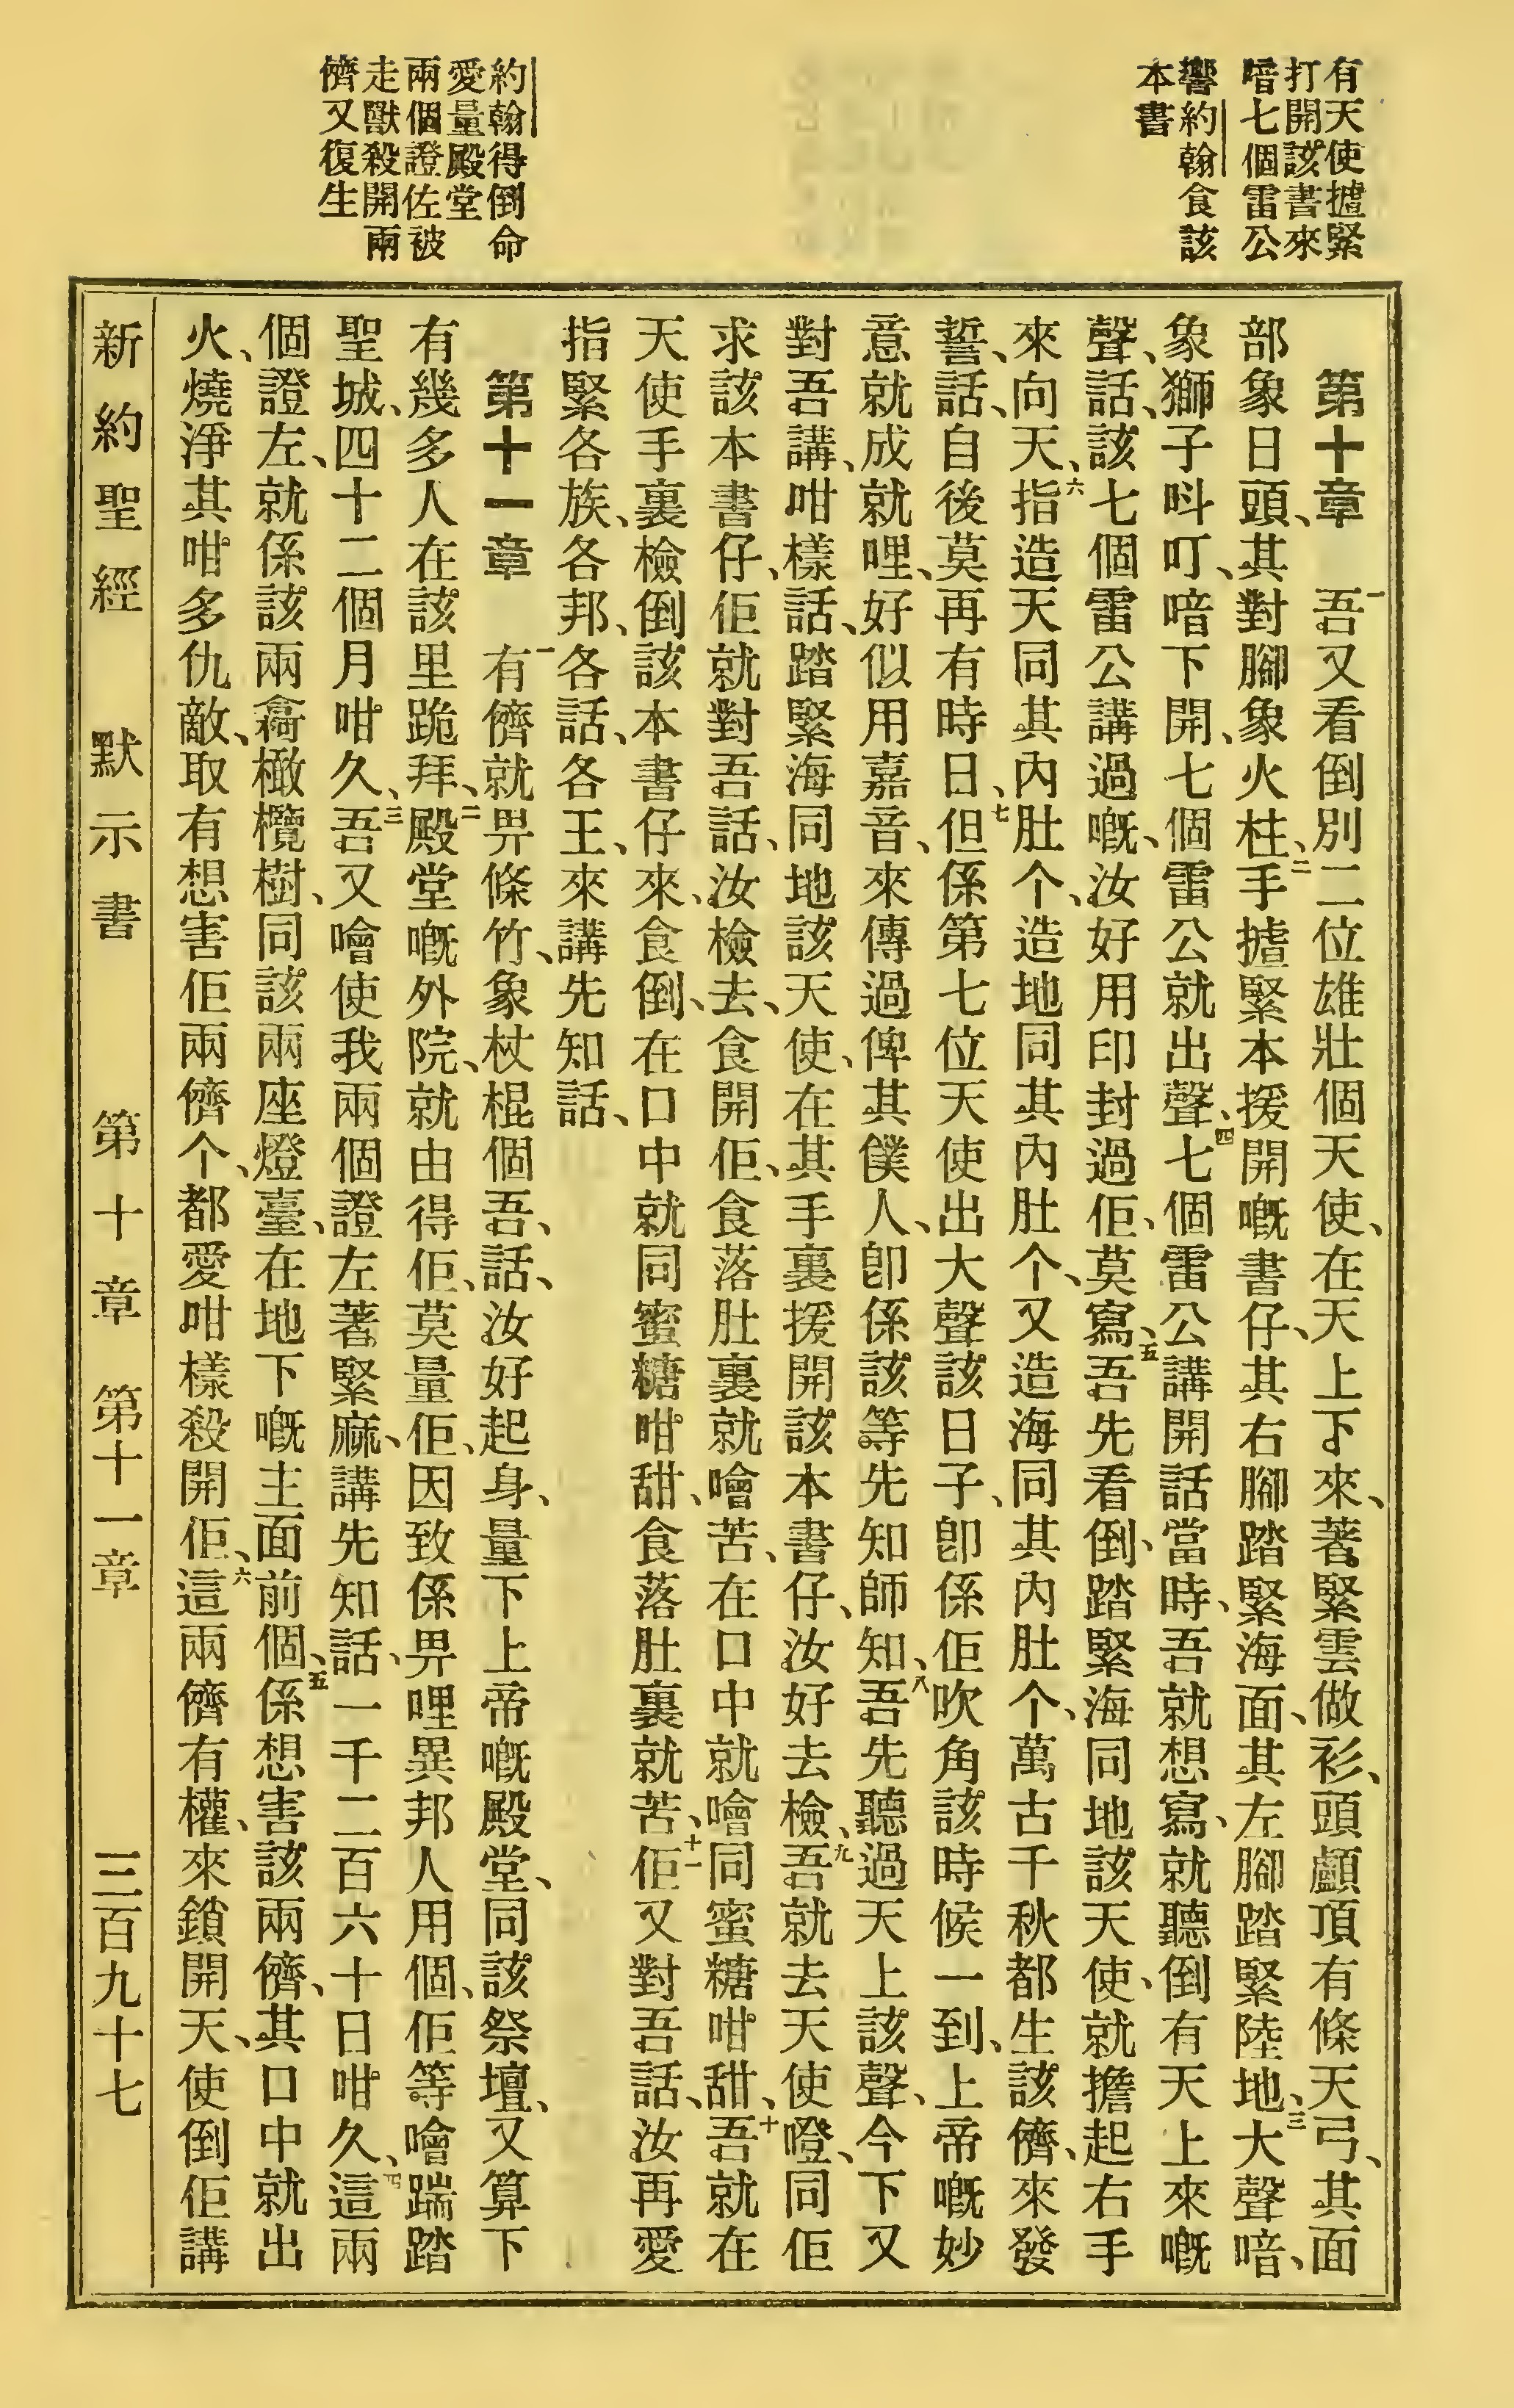 有天使摣緊
打開該書來
喑七個雷公
響約翰食該
本書
約翰得倒命
愛量殿堂
兩個證佐被
走獸殺開兩
儕又復生
第十章 一吾又看倒別二位雄壯個天使、在天上下來、著緊雲做衫、頭顱頂有條天弓、其面
部象日頭、其對腳象火柱、二手摣緊本援開嘅書仔、其右腳踏緊海面、其左腳踏緊陸地、三大聲喑、
象獅子呌叮、喑下開、七個雷公就出聲、四七個雷公講開話當時、吾就想寫、就聽倒有天上來嘅
聲、話、該七個雷公講過嘅、汝好用印封過佢、莫寫、五吾先看倒、踏緊海同地該天使、就擔起右手
來向天、六指造天同其內肚个、造地同其內肚个、又造海同其內肚个、萬古千秋都生該儕、來發
誓、話、自後莫再有時日、七但係第七位天使出大聲該日子、卽係佢吹角該時候一到、上帝嘅妙
意就成就哩、好似用嘉音、來傳過俾其僕人、卽係該等先知師知、八吾先聽過天上該聲、今下又
對吾講、咁樣話、踏緊海同地該天使、在其手裏援開該本書仔、汝好去檢、九吾就去天使嶝、同佢
求該本書仔、佢就對吾話、汝檢去、食開佢、食落肚裏就噲苦、在口中就噲同蜜糖咁甜、十吾就在
天使手裏檢倒該本書仔來、食倒、在口中就同蜜糖咁甜、食落肚裏就苦、十一佢又對吾話、汝再愛
指緊各族、各邦、各話、各王、來講先知話、
第十一章 一有儕就畀條竹、象杖棍個吾、話、汝好起身、量下上帝嘅殿堂、同該祭壇、又算下
有幾多人在該里跪拜、二殿堂嘅外院、就由得佢、莫量佢、因致係畀哩異邦人用個、佢等噲踹踏
聖城、四十二個月咁久、三吾又噲使我兩個證左著緊麻、講先知話、一千二百六十日咁久、四這兩
個證左、就係該兩喬橄欖樹、同該兩座燈臺、在地下嘅主面前個、五係想害該兩儕、其口中就出
火、燒淨其咁多仇敵、取有想害佢兩儕个、都愛咁樣殺開佢、六這兩儕有權、來鎖開天、使倒佢講
新約聖經 默示書 第十章 第十一章 三百九十七